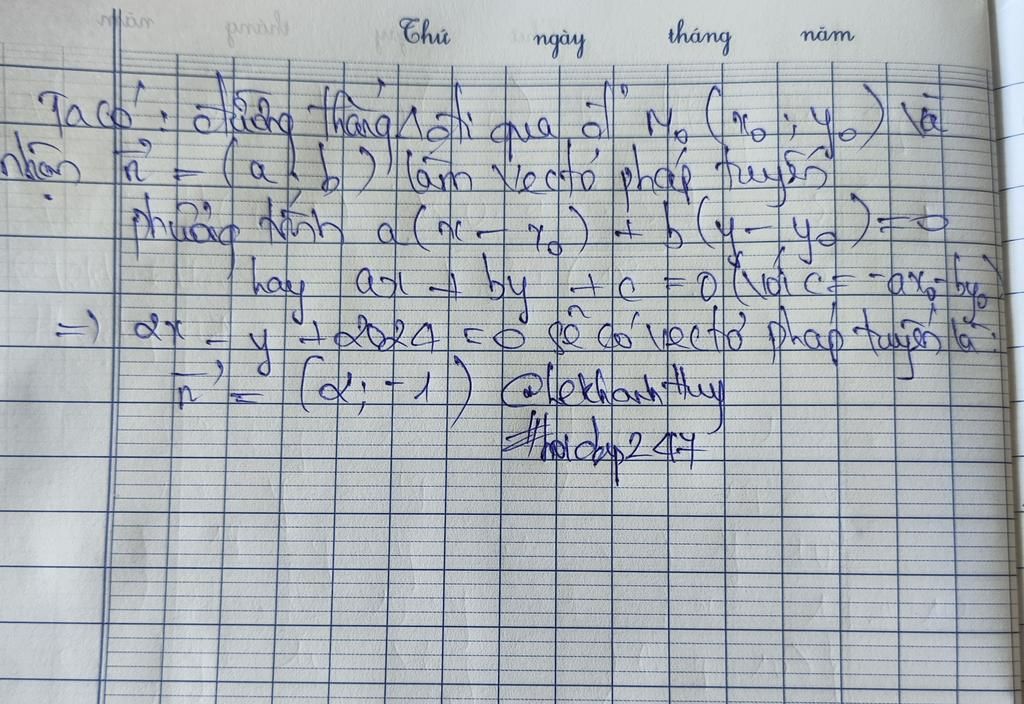 Thứ ngày tháng năm
Ta có: đường thẳng đi qua M₀ (x₀; y₀) và
nhận n⃗ = (a; b) làm vectơ pháp tuyến
phương trình a(x - x₀) + b(y - y₀) = 0
hay ax + by + c = 0 (với c = -ax₀ - by₀)
=> 2x - y + 2024 = 0 sẽ có vectơ pháp tuyến là:
n⃗ = (2; -1) @lekhanhthuy
#hoidap247